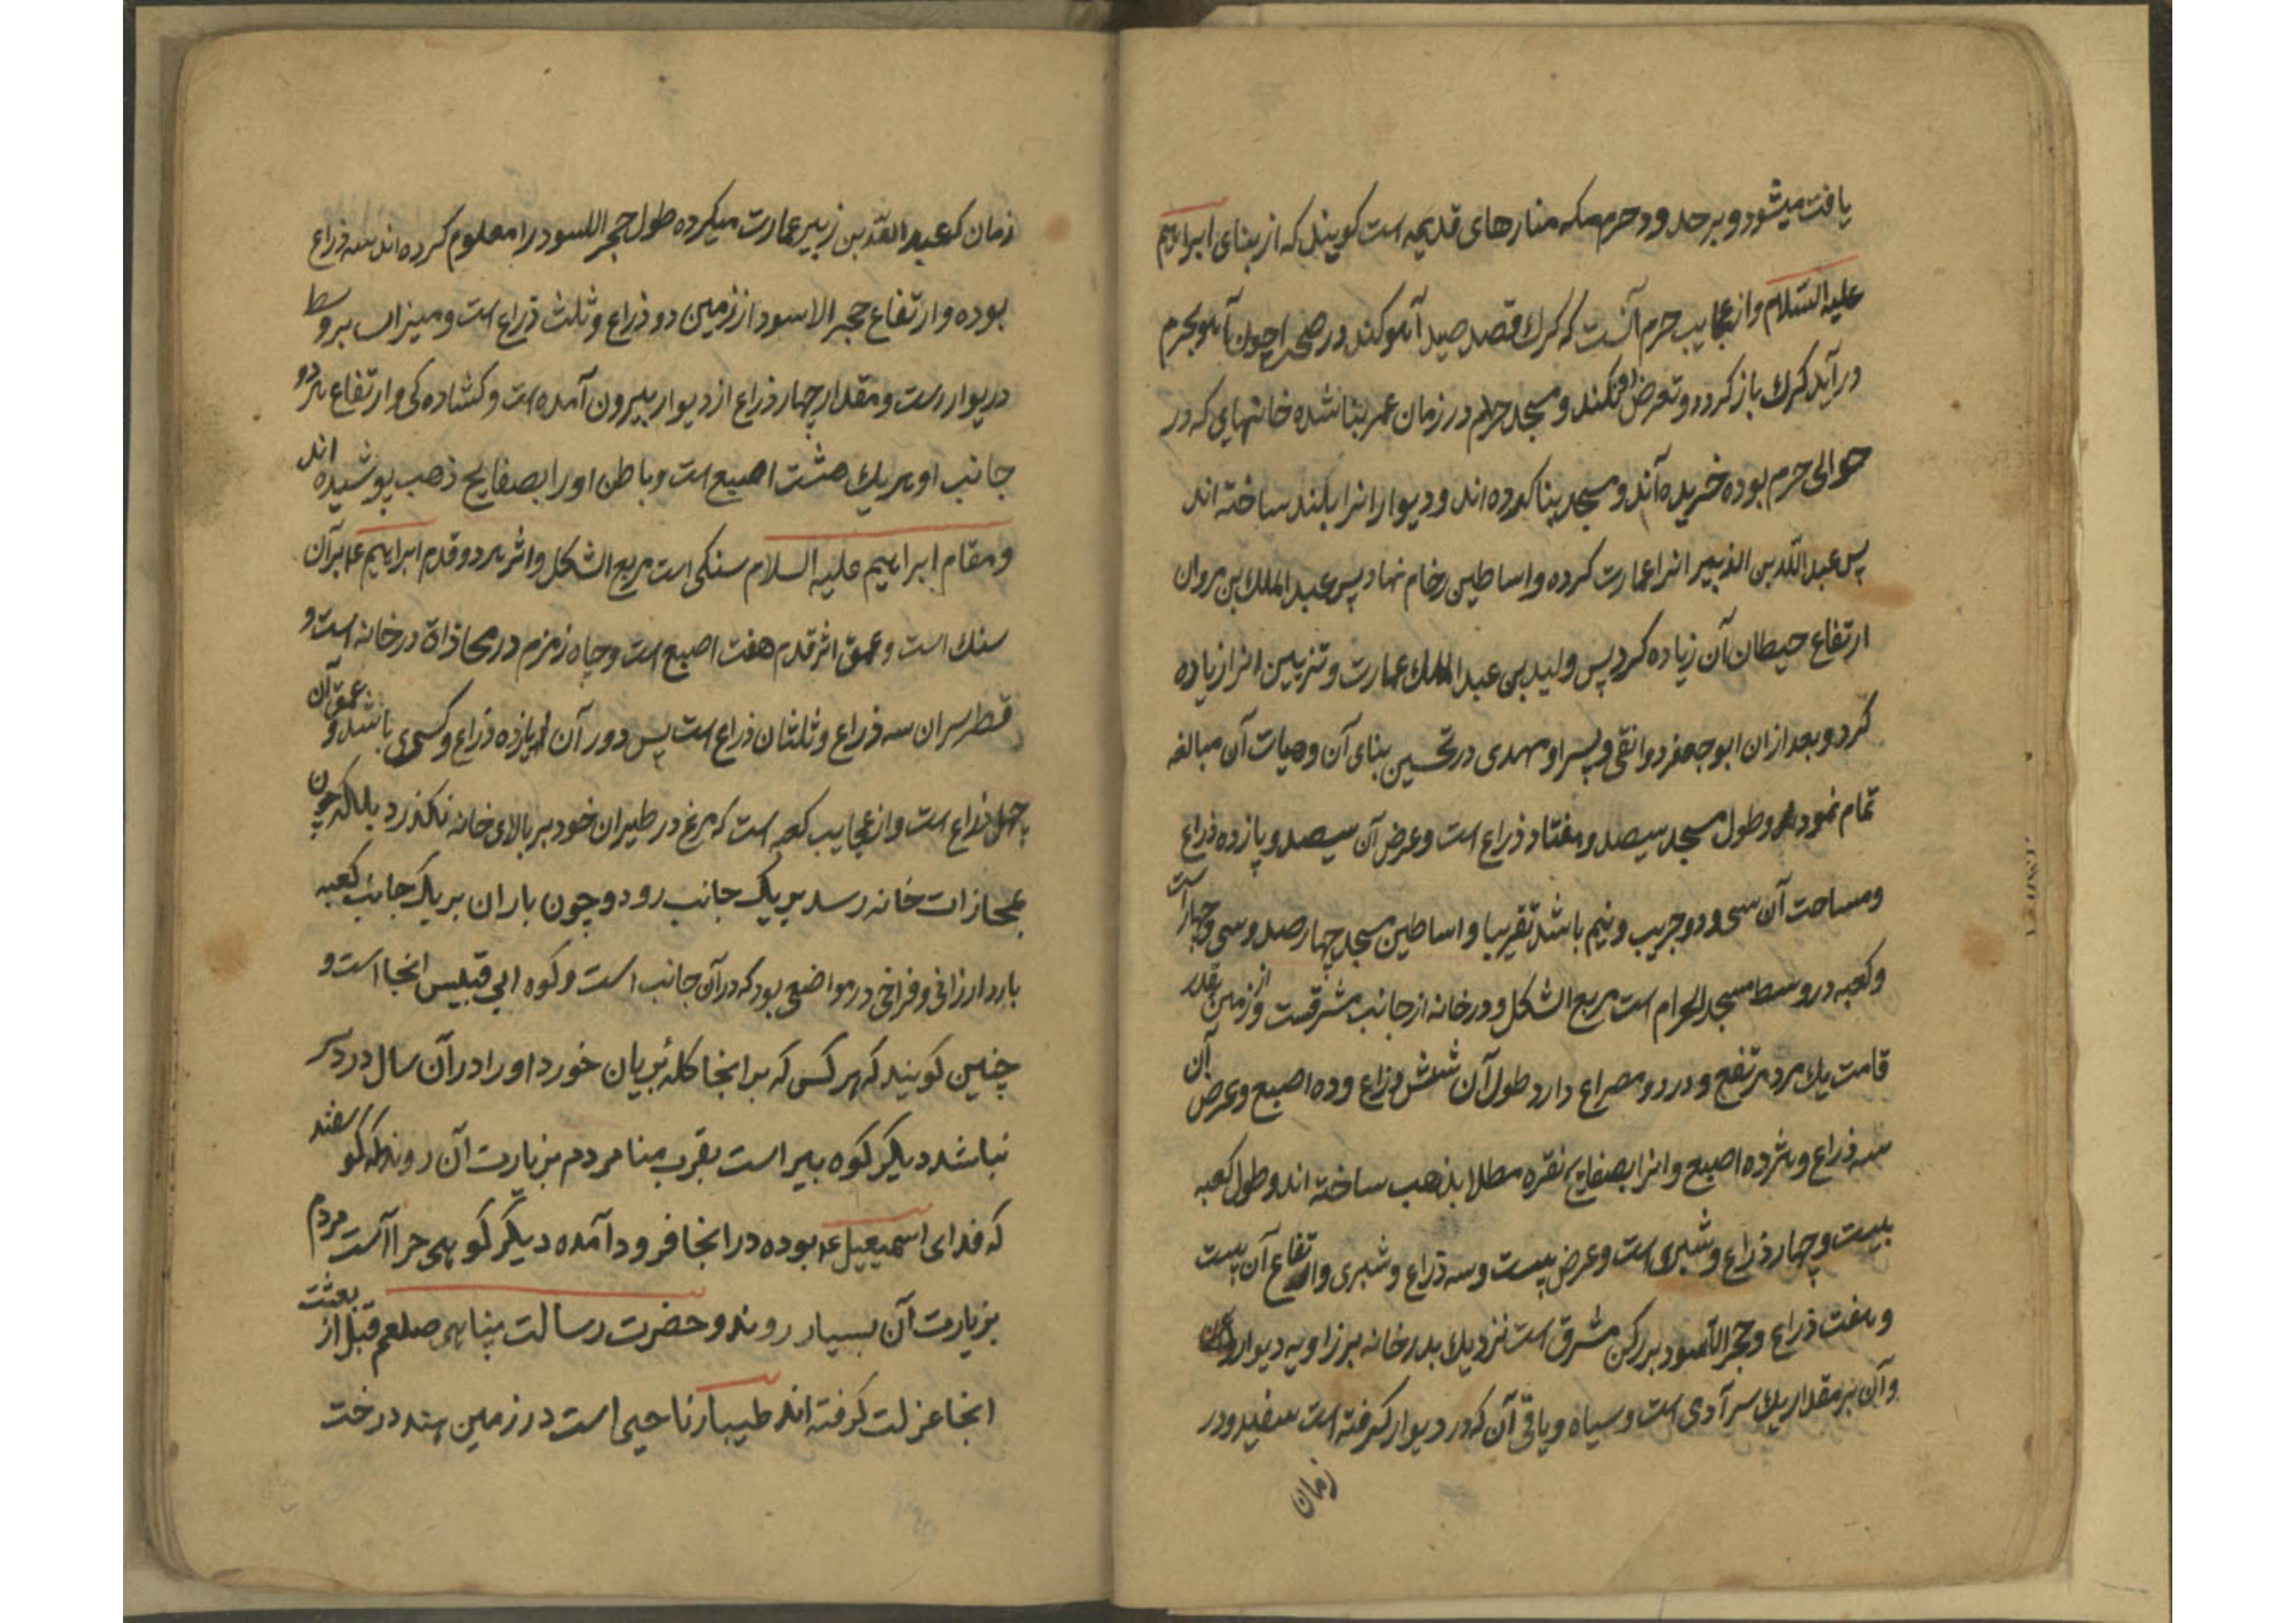 یافت میشود و بر حدود حرم مکه منارهای قدیمه است کویند که از بنای ابراهیم
علیه السّلام و از عجایب حرم آنست که کرک قصد صید آهو کند در صحرا چون آهو بحرم
در آید کرک باز کردد و تعرض او نکند و مسجد حرام در زمان عمر بنا شده خانهای که در
حوالی حرم بوده خریده آند و مسجد بنا کرده اند و دیوار انرا بلند ساخته اند
پس عبد اللّه بن الذبیر انرا عمارت کرده و اساطین رخام نهاد پس عبد الملک بن مروان
ارتفاع حیطان آن زیاده کرد پس ولید بن عبد الملک عمارت و تزیین انرا زیاده
کرد و بعد از ان ابو جعفر دوانقی و پسر او مهدی در تحسین بنای آن و هیات آن مبالغه
تمام نموده و طول مسجد سیصد و هفتاد ذراع است و عرض آن سیصد و پازده ذراع
و مساحت آن سی و دو جریب و نیم باشد تقریبا و اساطین مسجد چهار صد و سی و چهار است
و کعبه در وسط مسجد الحرام است مربع الشکل و در خانه از جانب مشرقست و از زمین بقدر
قامت یک مرد مرتفع و در دو مصراع دارد طول آن شش ذراع و ده اصبع و عرض آن
سه ذراع و هژده اصبع و انرا بصفایح نقره مطلا بذهب ساخته اند و طول کعبه
بیست و چهار ذراع و شبری است و عرض بیست و سه ذراع و شبری و ارتفاع آن بیست
و هفت ذراع و حجر الاسود بر رکن مشرق است نزدیک بدر خانه بر زاویه دیوار
و آن بر مقدار یک سر آدمی است و سیاه و باقی آن که در دیوار کرفته است سفید و در
زمان
زمان که عبد اللّه بن زبیر عمارت میکرده طول حجر اللسود را معلوم کرده اند سه ذراع
بوده و ارتفاع حجر الاسود از زمین دو ذراع و ثلث ذراع است و میزاب بر وسط
دیوار است و مقدار چهار ذراع از دیوار بیرون آمده است و کشاده کی و ارتفاع هر دو
جانب او هر یک هشت اصبع است و باطن او را بصفایح ذهب پوشیده اند
و مقام ابراهیم علیه السلام سنکی است مربع الشکل و اثر هر دو قدم ابراهیم ع بر آن
سنک است و عمق اثر قدم هفت اصبع است و چاه زمزم در محاذاة در خانه است و
قطر سر ان سه ذراع و ثلثان ذراع است پس دور آن یازده ذراع و کسری باشد و عمق آن
چهل ذراع است و از عجایب کعبه است که مرغ در طیران خود بر بالای خانه نکذرد بلکه چون
بمحازات خانه رسد بر یک جانب رود و چون باران بر یک جانب کعبه
بارد ارزانی و فراخی در مواضعی بود که در آن جانب است و کوه ابی قبیس انجا است و
چنین کویند که هر کس که بر انجا کلهٔ بریان خورد او را در آن سال درد سر
نباشد دیکر کوه بیر است بقرب منا مردم بزیارت آن روند که کوسفند
که فدای اسمیعیل ع بوده در انجا فرود آمده دیکر کوهی حرا است مردم
بزیارت آن بسیار روند و حضرت رسالت پناهی صلعم قبل از بعثت
انجا عزلت کرفته اند طیبار ناحیی است در زمین هند درخت